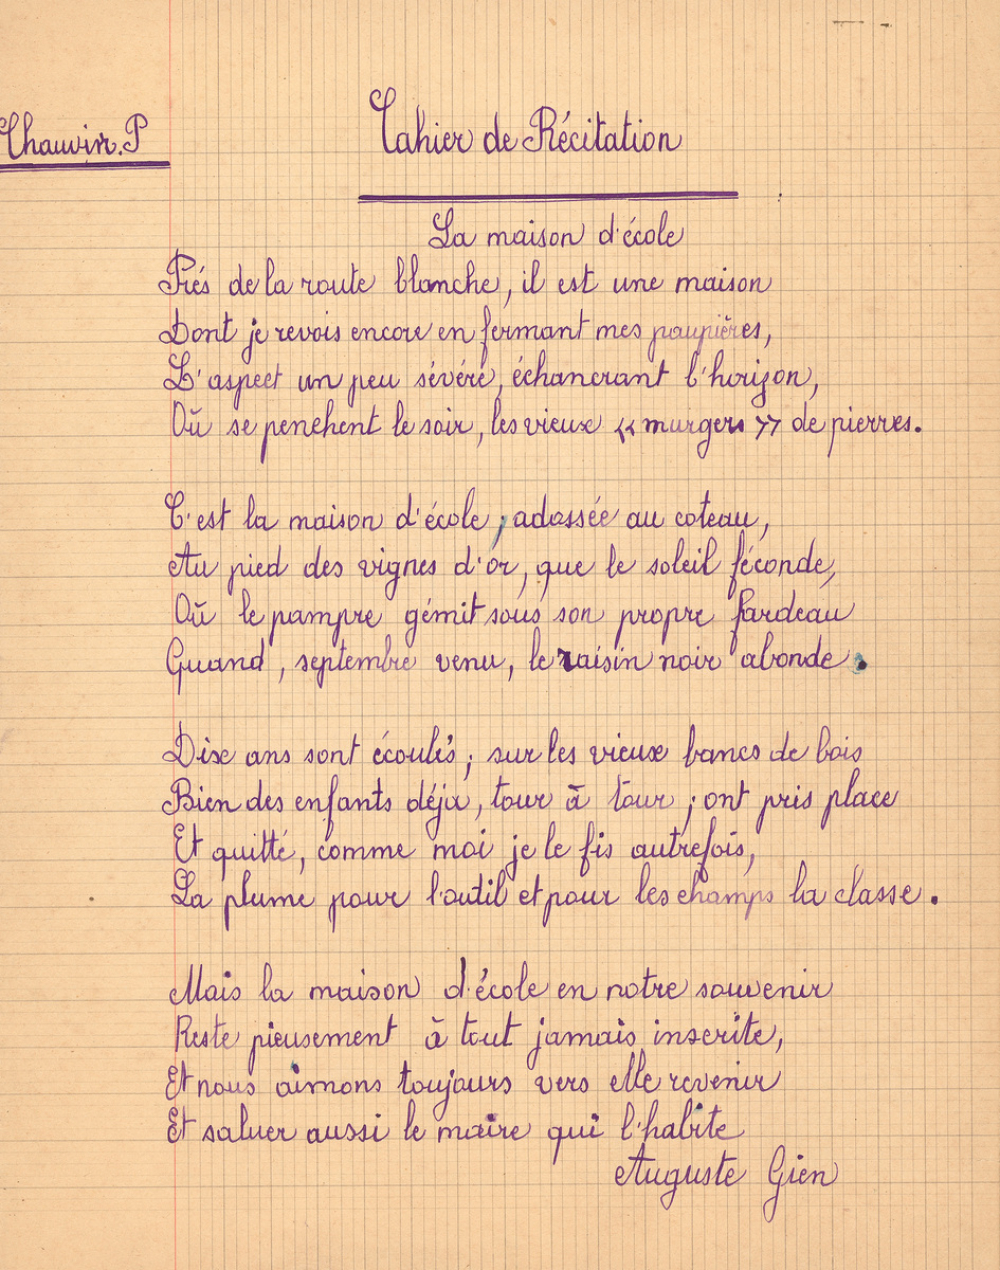 Chauvin. P
Cahier de Récitation
La maison d'école
Prés de la route blanche, il est une maison
Dont je revois encore en fermant mes paupières,
L'aspect un peu sévéré, échancrant l'horizon,
Où se penchent le soir, les vieux « murgers » de pierres.
C'est la maison d'école, adossée au coteau,
Au pied des vignes d'or, que le soleil féconde,
Où le pampre gémit sous son propre fardeau
Quand, septembre venu, le raisin noir abonde.
Dix ans sont écoulés; sur les vieux bancs de bois
Bien des enfants déja, tour à tour; ont pris place
Et quitté, comme moi je le fis autrefois,
La plume pour l'outil et pour les champs la classe.
Mais la maison d'école en notre souvenir
Reste pieusement à tout jamais inscrite,
Et nous aimons toujours vers elle revenir
Et saluer aussi le maire qui l'habite
Auguste Gien